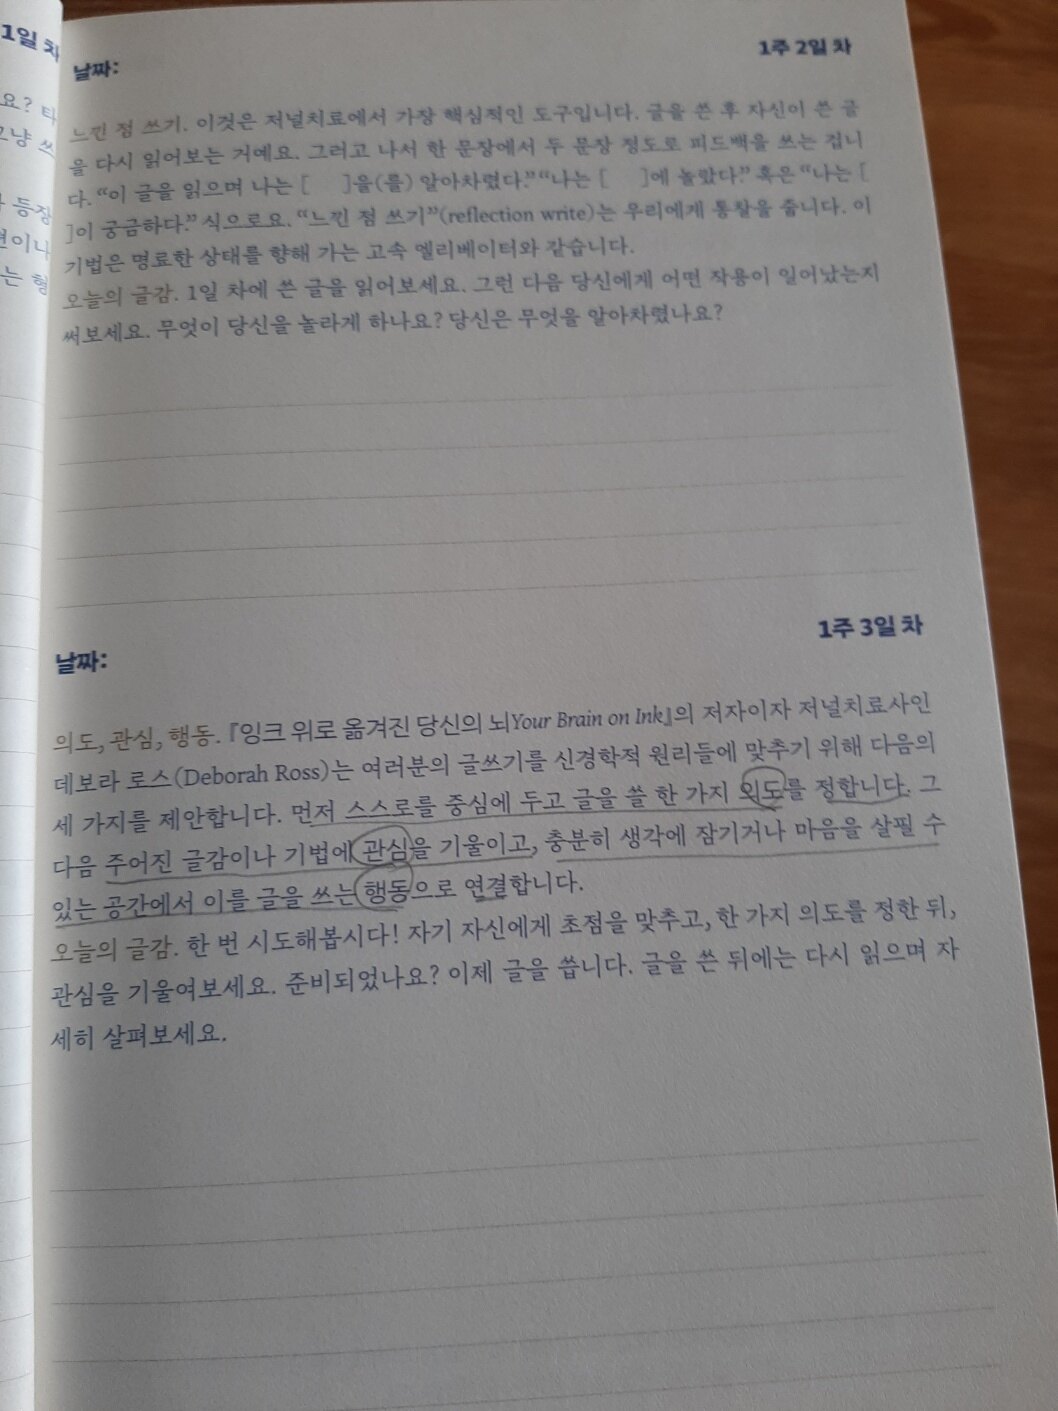 1일 차
요? 타
그냥 쓰
등장
는 형
1주 2일 차
날짜:
느낀 점 쓰기. 이것은 저널치료에서 가장 핵심적인 도구입니다. 글을 쓴 후 자신이 쓴 글
을 다시 읽어보는 거예요. 그러고 나서 한 문장에서 두 문장 정도로 피드백을 쓰는 겁니
다. “이 글을 읽으며 나는 [ ]을(를) 알아차렸다.” “나는 [ ]에 놀랐다.” 혹은 “나는 [
]이 궁금하다.” 식으로요. “느낀 점 쓰기”(reflection write)는 우리에게 통찰을 줍니다. 이
기법은 명료한 상태를 향해 가는 고속 엘리베이터와 같습니다.
오늘의 글감. 1일 차에 쓴 글을 읽어보세요. 그런 다음 당신에게 어떤 작용이 일어났는지
써보세요. 무엇이 당신을 놀라게 하나요? 당신은 무엇을 알아차렸나요?
1주 3일 차
날짜:
의도, 관심, 행동. 『잉크 위로 옮겨진 당신의 뇌Your Brain on Ink』의 저자이자 저널치료사인
데보라 로스(Deborah Ross)는 여러분의 글쓰기를 신경학적 원리들에 맞추기 위해 다음의
세 가지를 제안합니다. 먼저 스스로를 중심에 두고 글을 쓸 한 가지 의도를 정합니다. 그
다음 주어진 글감이나 기법에 관심을 기울이고, 충분히 생각에 잠기거나 마음을 살필 수
있는 공간에서 이를 글을 쓰는 행동으로 연결합니다.
오늘의 글감. 한 번 시도해봅시다! 자기 자신에게 초점을 맞추고, 한 가지 의도를 정한 뒤,
관심을 기울여보세요. 준비되었나요? 이제 글을 씁니다. 글을 쓴 뒤에는 다시 읽으며 자
세히 살펴보세요.